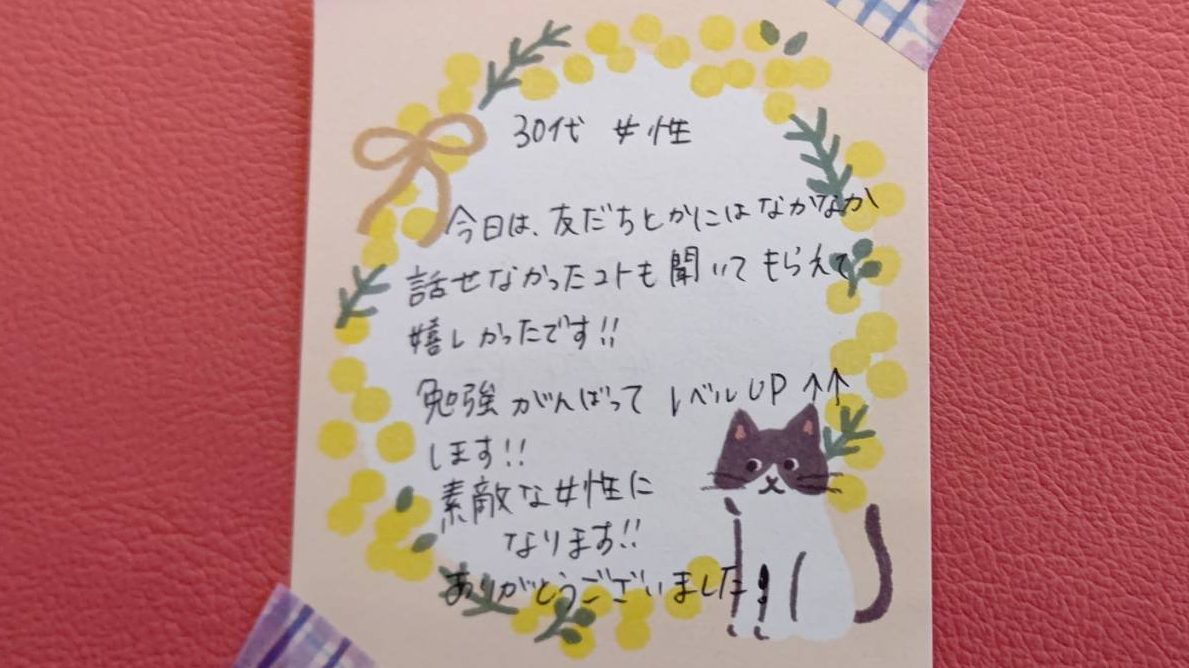 30代 女性
今日は、友だちとかにはなかなか
話せなかったコトも聞いてもらえて
嬉しかったです!!
勉強がんばって レベルUP↑↑
します!!
素敵な女性に
なります!!
ありがとうございました!